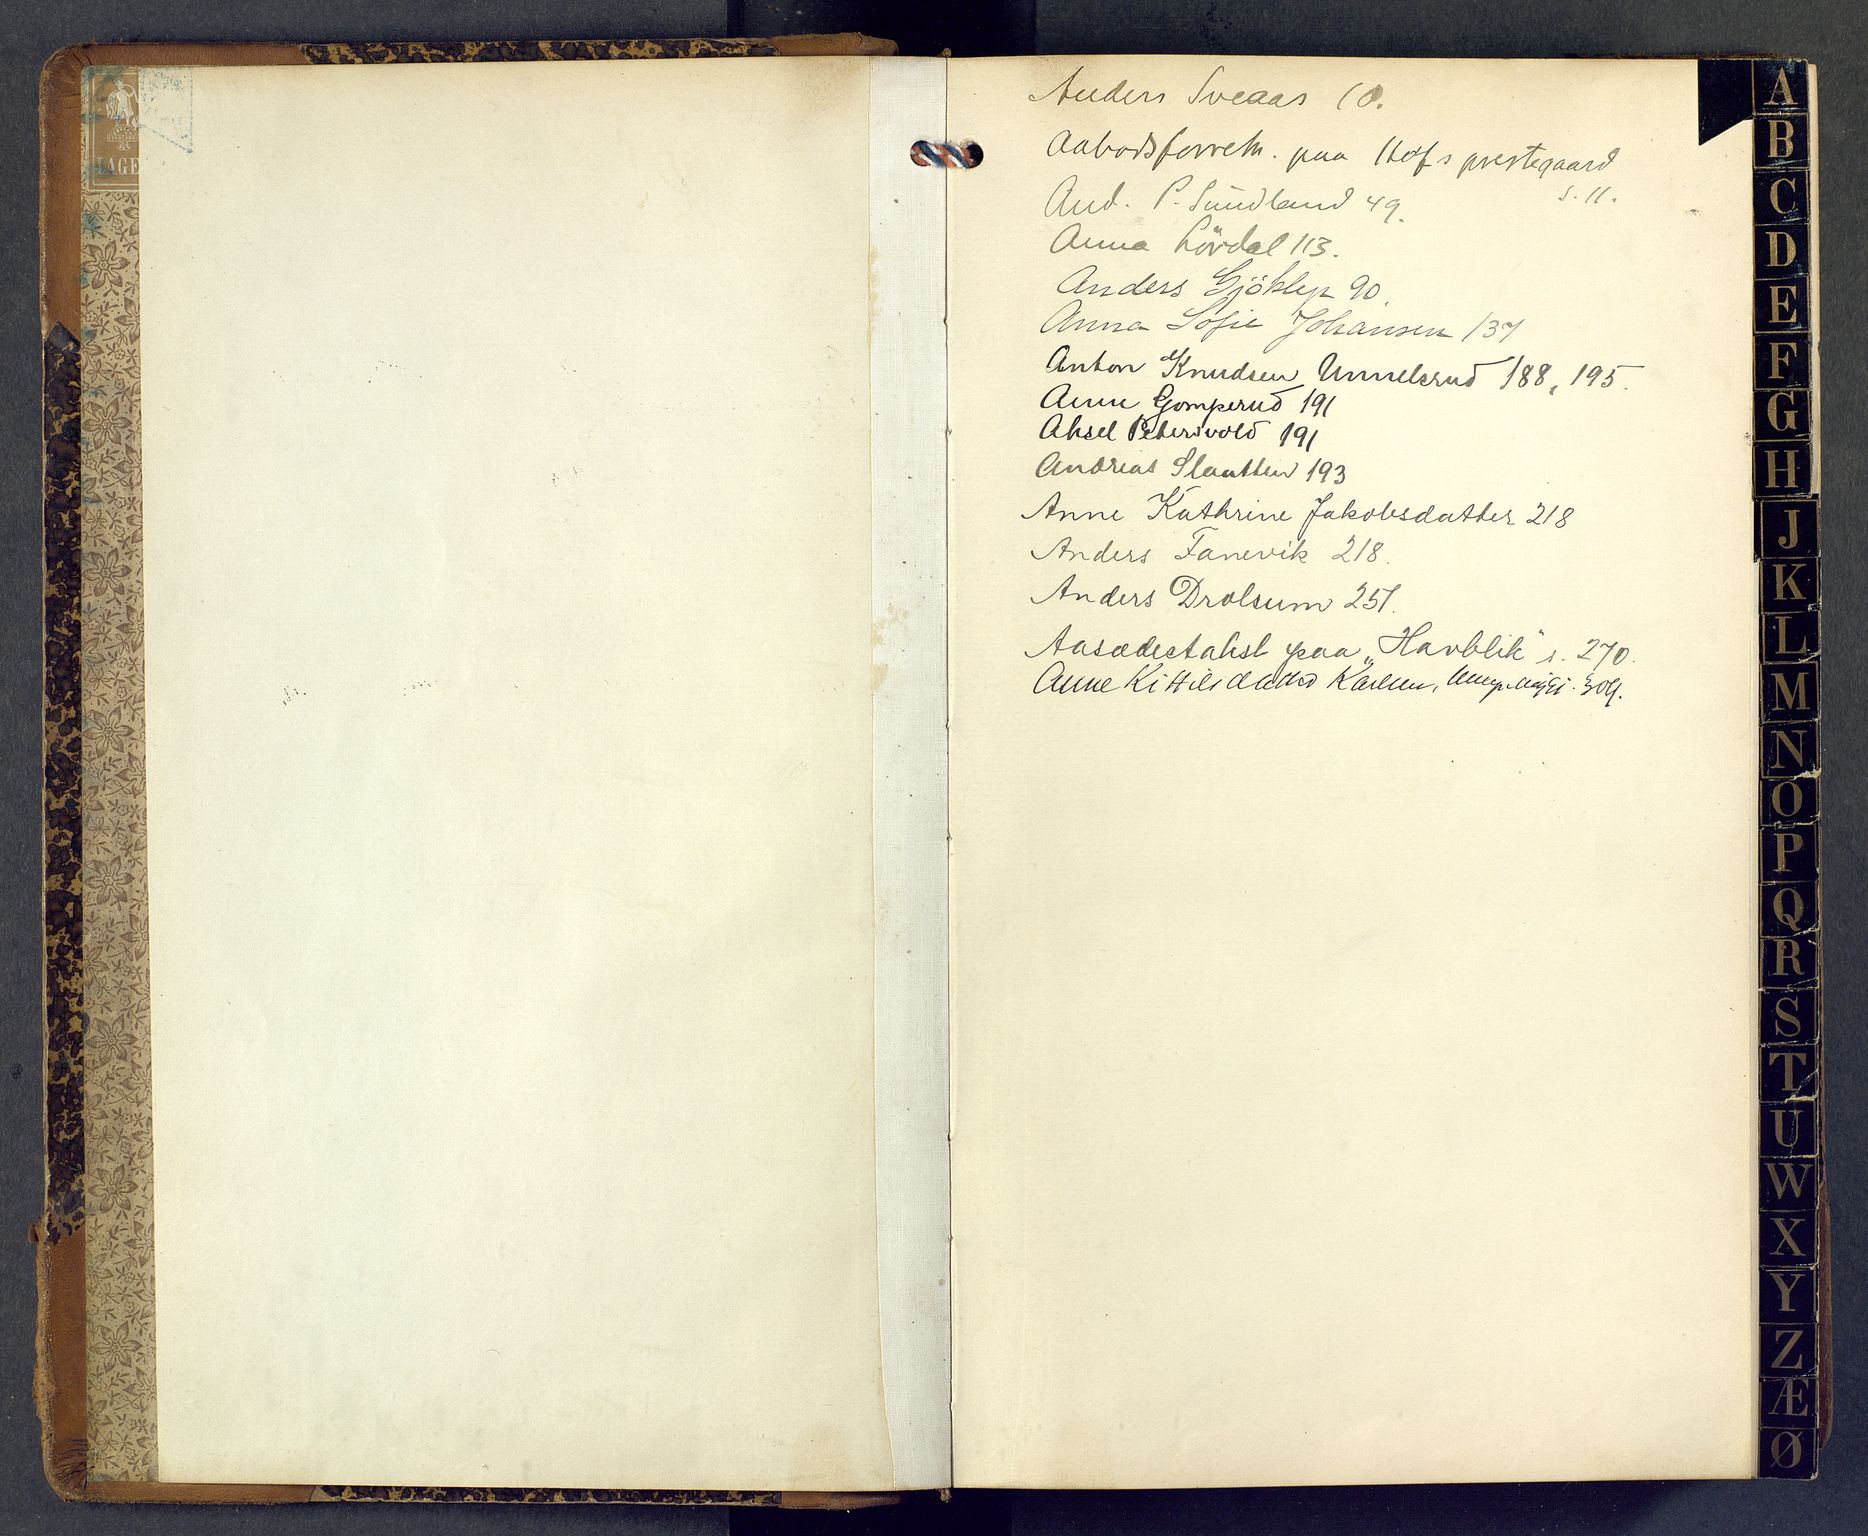 LAGE
Anders Sveaas 10.
Aabodsforretn. paa Hofs prestegaard
s. 11.
And. P. Sundland 49.
Anna Lövdal 113.
Anders Gjöklep 90.
Anna Sofie Johansen 137
Anton Knudsen Unnelsrud 188, 195.
Anne Gomperud 191
Aksel Petersvold 191
Andreas Slaatten 193
Anne Kathrine Jakobsdatter 218
Anders Fanevik 218.
Anders Drolsum 251.
Aasædestakst paa „Havblik“ s. 270.
Anne Kittilsdatter 309.
A
B
C
D
E
F
G
H
J
K
L
M
N
O
P
Q
R
S
T
U
W
X
Y
Z
Æ
Ø